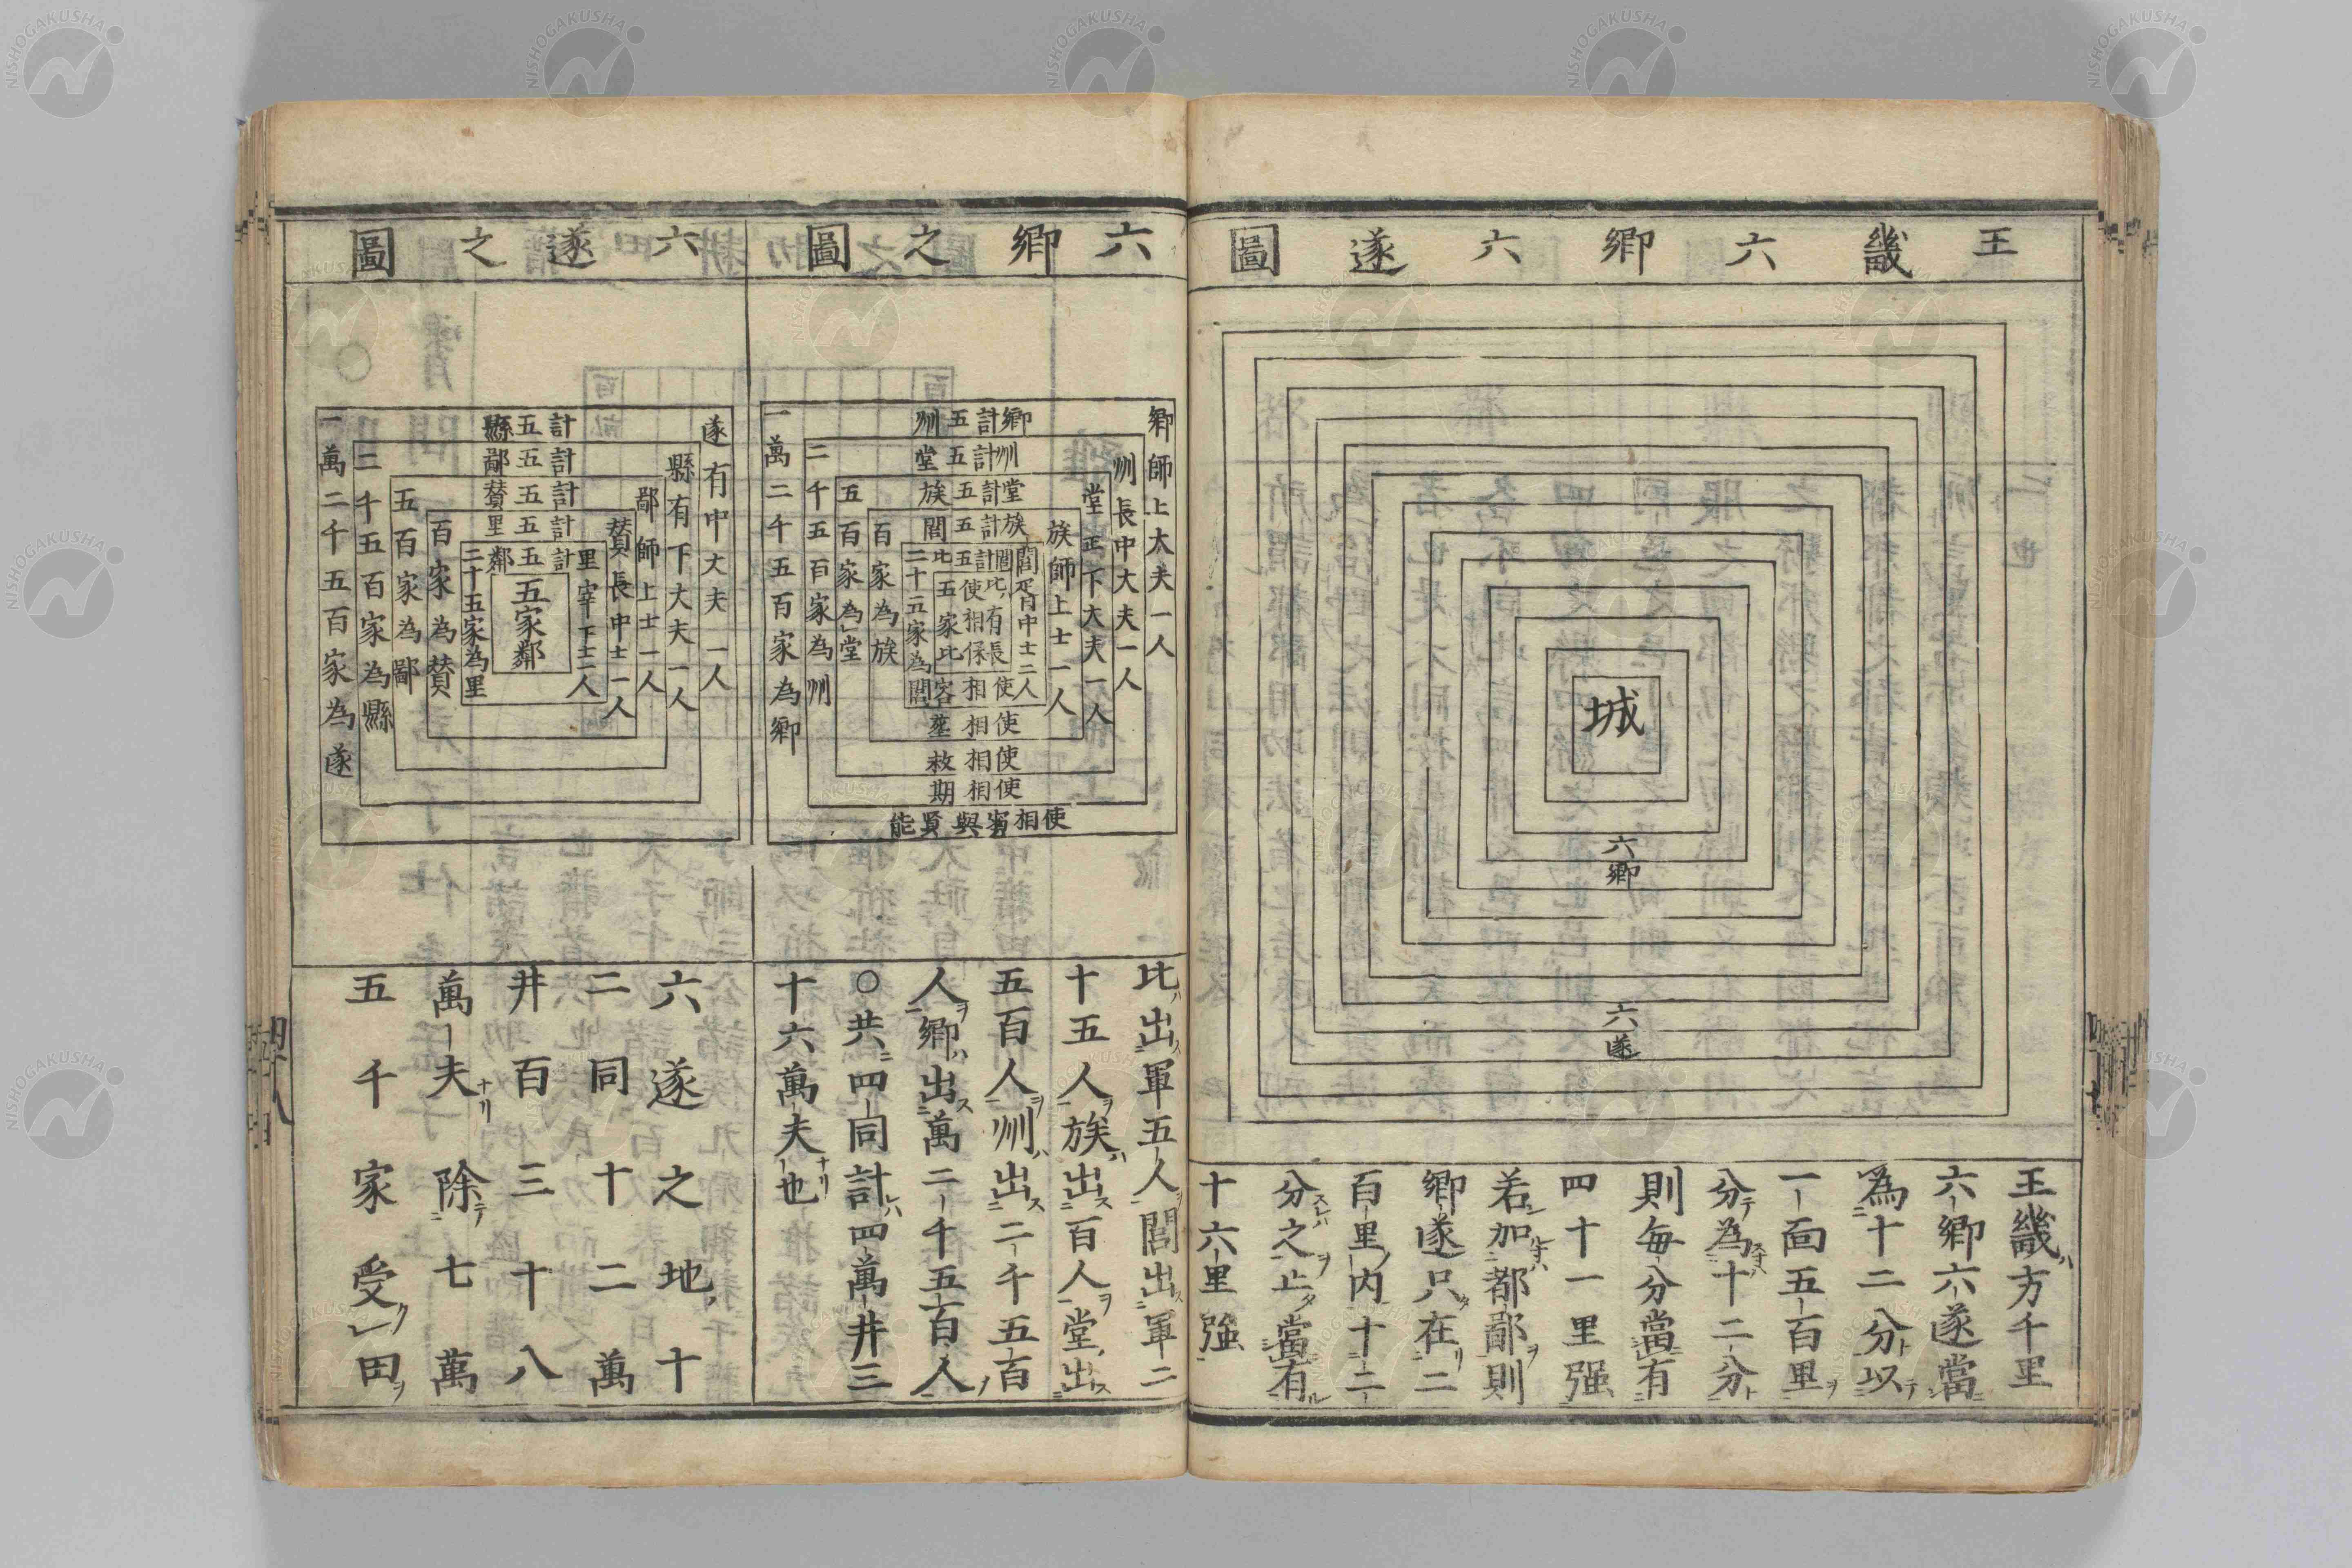 王畿六鄉六遂圖
城
六鄉
六遂
王畿方千里
六鄉六遂當
為十二分以
一面五百里
分為十二分
則每分當有
四十一里强
若加都鄙則
鄉遂只在二
百里内十二
分之止當有
十六里强
六鄉之圖
鄉師上大夫一人
州長中大夫一人
堂正下大夫一人
族師上士一人
閭胥中士二人
比有長
鄉計五州
州計五堂
堂計五族
族計五閭
閭計五比
五家比
使相保
使相容
使相葬
使相救
使相期
使相賓與賢能
二十五家為閭
百家為族
五百家為堂
二千五百家為州
一萬二千五百家為鄉
比出軍五人閭出軍二
十五人族出百人堂出
五百人州出二千五百
人鄉出萬二千五百人
○共四同計四萬井三
十六萬夫也
六遂之圖
遂有中大夫一人
縣有下大夫一人
鄙師上士一人
賛長中士一人
里宰下士一人
計五縣
計五鄙
計五賛
計五里
計五鄰
五家鄰
二十五家為里
百家為賛
五百家為鄙
二千五百家為縣
一萬二千五百家為遂
六遂之地十
二同十二萬
井百三十八
萬夫除七萬
五千家受一田
NISHOGAKUSHA